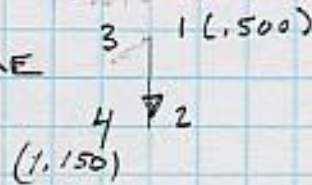 3 1 (.500)
E
4 2
(1.150)